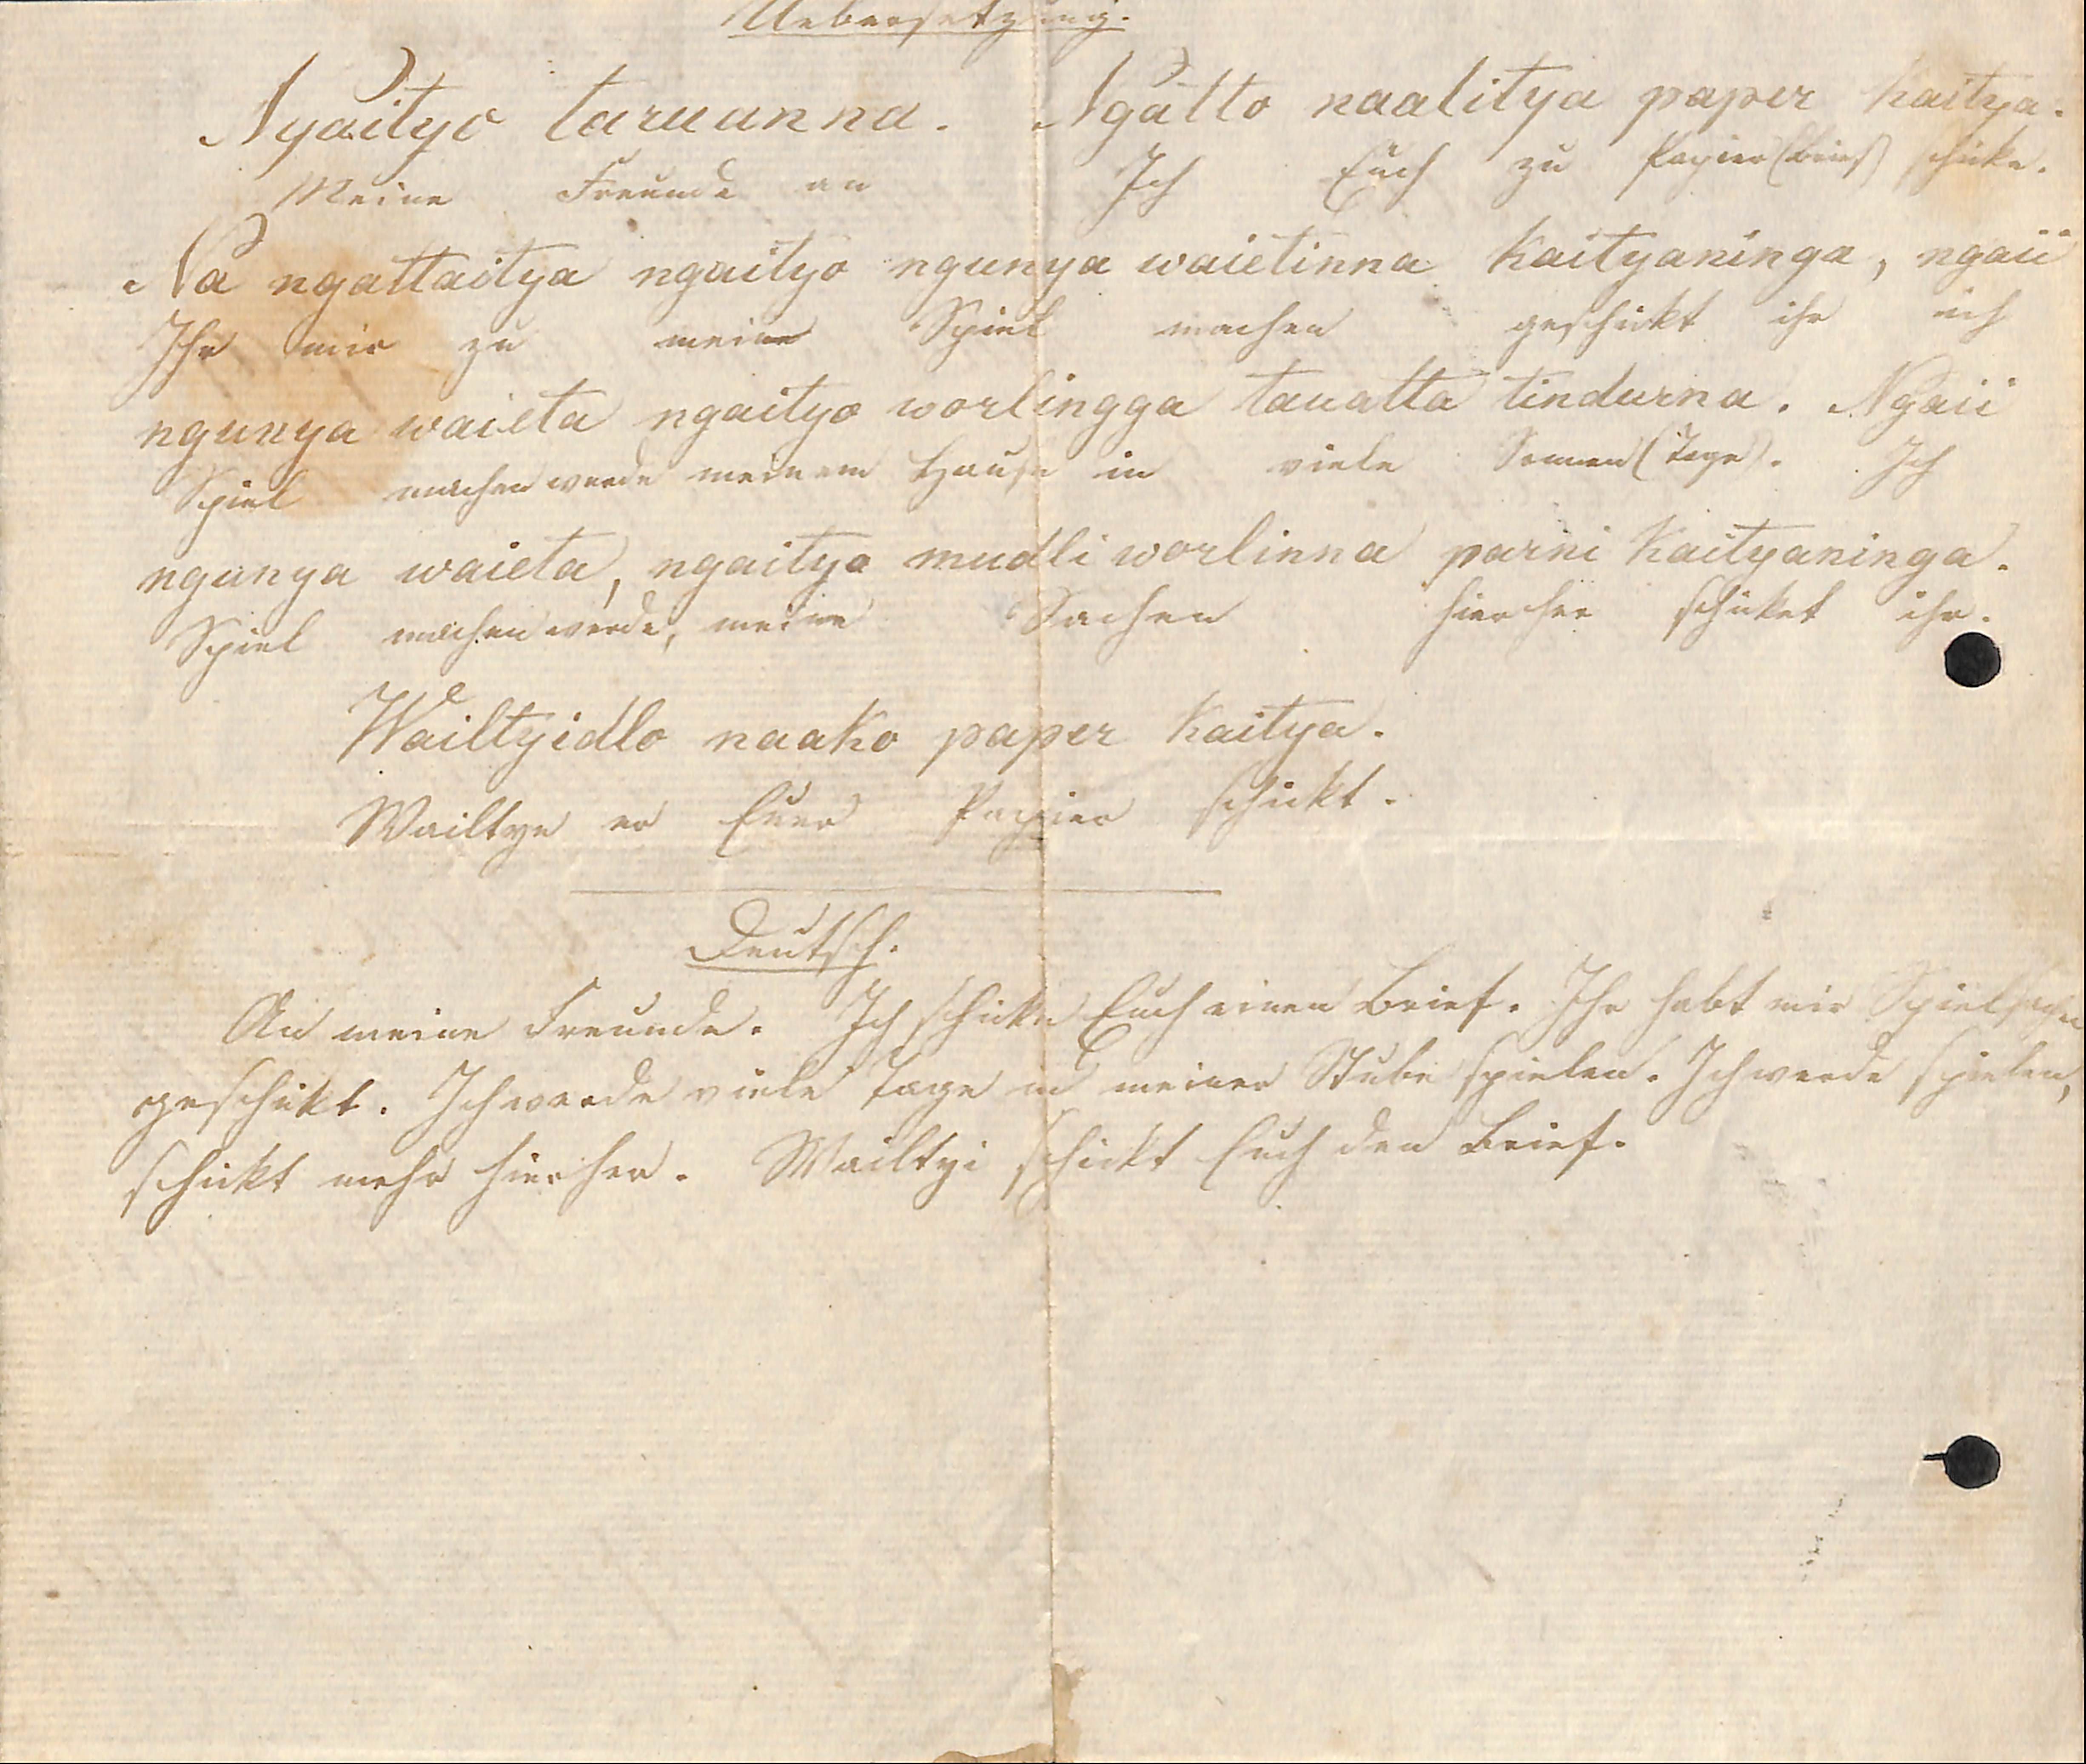 Uebersetzung.
Ngaityo taruanna. Ngatto naalitya paper kaitya.
Meine Freunde an Ich Euch zu Papier (Brief) schicke.
Na ngattaitya ngaityo ngunya waietinna kaityaninga, ngaii
Ihr mir zu meine Spiel machen geschickt ihr ich
ngunya waieta ngaityo worlingga tauatta tindurna. Ngaii
Spiel machen werde meinem Hause in viele Sonnen (Tage). Ich
ngunya waieta, ngaityo mudliworlinna parni kaityaninga.
Spiel machen werde, meine Sachen hierher schicket ihr.
Wailtyidlo naako paper kaitya.
Wailtye er Euer Papier schickt.
Deutsch.
An meine Freunde. Ich schicke Euch einen Brief. Ihr habt mir Spielsachen
geschickt. Ich werde viele Tage in meiner Stube spielen. Ich werde spielen,
schickt mehr hierher. Wailtyi schickt Euch den Brief.